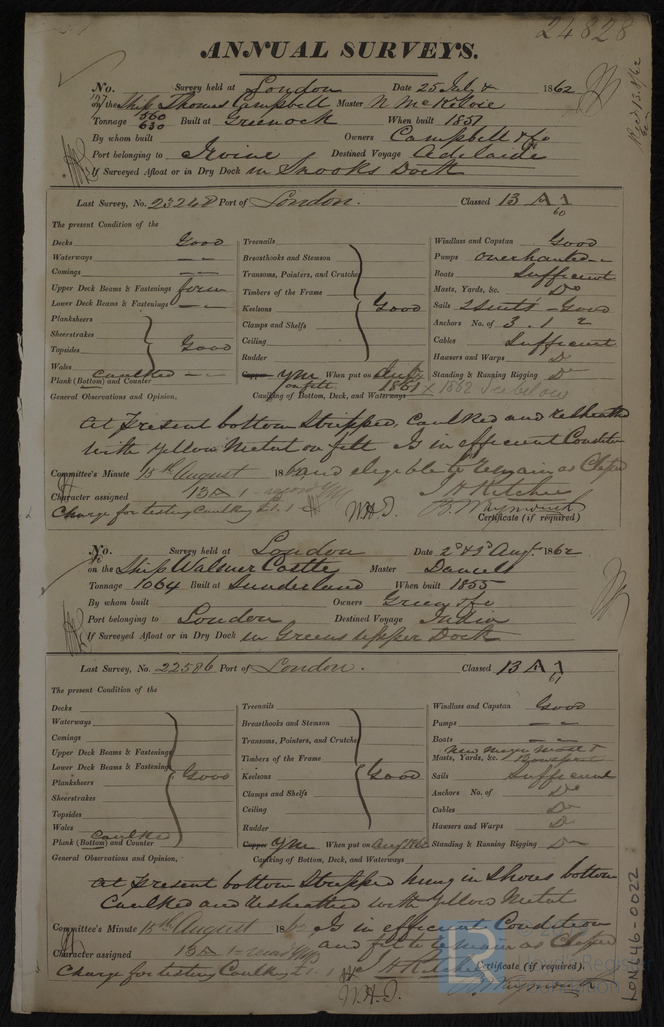 24828
ANNUAL SURVEYS.
No. Survey held at London Date 25 July & 1862
on the Ship Thomas Campbell Master N McKelvie
Tonnage 560 630 Built at Greenock When built 1851
By whom built Owners Campbell & Co
Port belonging to Irvine Destined Voyage Adelaide
If Surveyed Afloat or in Dry Dock in Snooks Dock
Last Survey, No. 23248 Port of London. Classed 13 A 1
60
The present Condition of the
Decks Good Treenails Windlass and Capstan Good
Waterways " " Breasthooks and Stemson Pumps overhauled
Comings " " Transoms, Pointers, and Crutches Boats Sufficient
Upper Deck Beams & Fastenings firm Timbers of the Frame Masts, Yards, &c. Do
Lower Deck Beams & Fastenings " Keelsons Good Sails 2 Suits Good
Planksheers Clamps and Shelfs Anchors No. of 3. 1 2
Sheerstrakes Ceiling Cables Sufficient
Topsides Good Rudder Hawsers and Warps Do
Wales Copper YM When put on Augt Standing & Running Rigging Do
Plank (Bottom) and Counter caulked on felt 1861 X 1862
General Observations and Opinion, Caulking of Bottom, Deck, and Waterways
At Present bottom Stripped, Caulked and resheathed
with Yellow Metal on felt Is in efficient Condition
and eligible to remain as Classed
Committee's Minute 15th August 1862
Character assigned 13 A 1 J H Ritchie
Charge for testing Caulking £1. 1 W.H.T. B. Waymouth
Certificate (if required)
No. Survey held at London Date 2d & 9 Augt 1862
on the Ship Walmer Castle Master Daniel
Tonnage 1064 Built at Sunderland When built 1855
By whom built Owners Green & Co
Port belonging to London Destined Voyage India
If Surveyed Afloat or in Dry Dock in Greens upper Dock
Last Survey, No. 22586 Port of London. Classed 13 A 1
61
The present Condition of the
Decks Treenails Windlass and Capstan Good
Waterways Breasthooks and Stemson Pumps " "
Comings Transoms, Pointers, and Crutches Boats " "
Upper Deck Beams & Fastenings Timbers of the Frame Masts, Yards, &c. New Mizen Mast & Bowsprit
Lower Deck Beams & Fastenings Good Keelsons Good Sails Sufficient
Planksheers Clamps and Shelfs Anchors No. of Do
Sheerstrakes Ceiling Cables Do
Topsides Rudder Hawsers and Warps Do
Wales Copper YM When put on Aug 1862 Standing & Running Rigging Do
Plank (Bottom) and Counter caulked
General Observations and Opinion, Caulking of Bottom, Deck, and Waterways
At Present bottom Stripped hung in Shores bottom
Caulked and resheathed with Yellow Metal
Committee's Minute 15th August 186 Is in efficient Condition
and fit to remain as Classed
Character assigned 13 A 1 J H Ritchie Certificate (if required).
Charge for testing Caulking £1. 1 W.H.T. B. Waymouth
LON446-0022
Lloyd's Register
Foundation